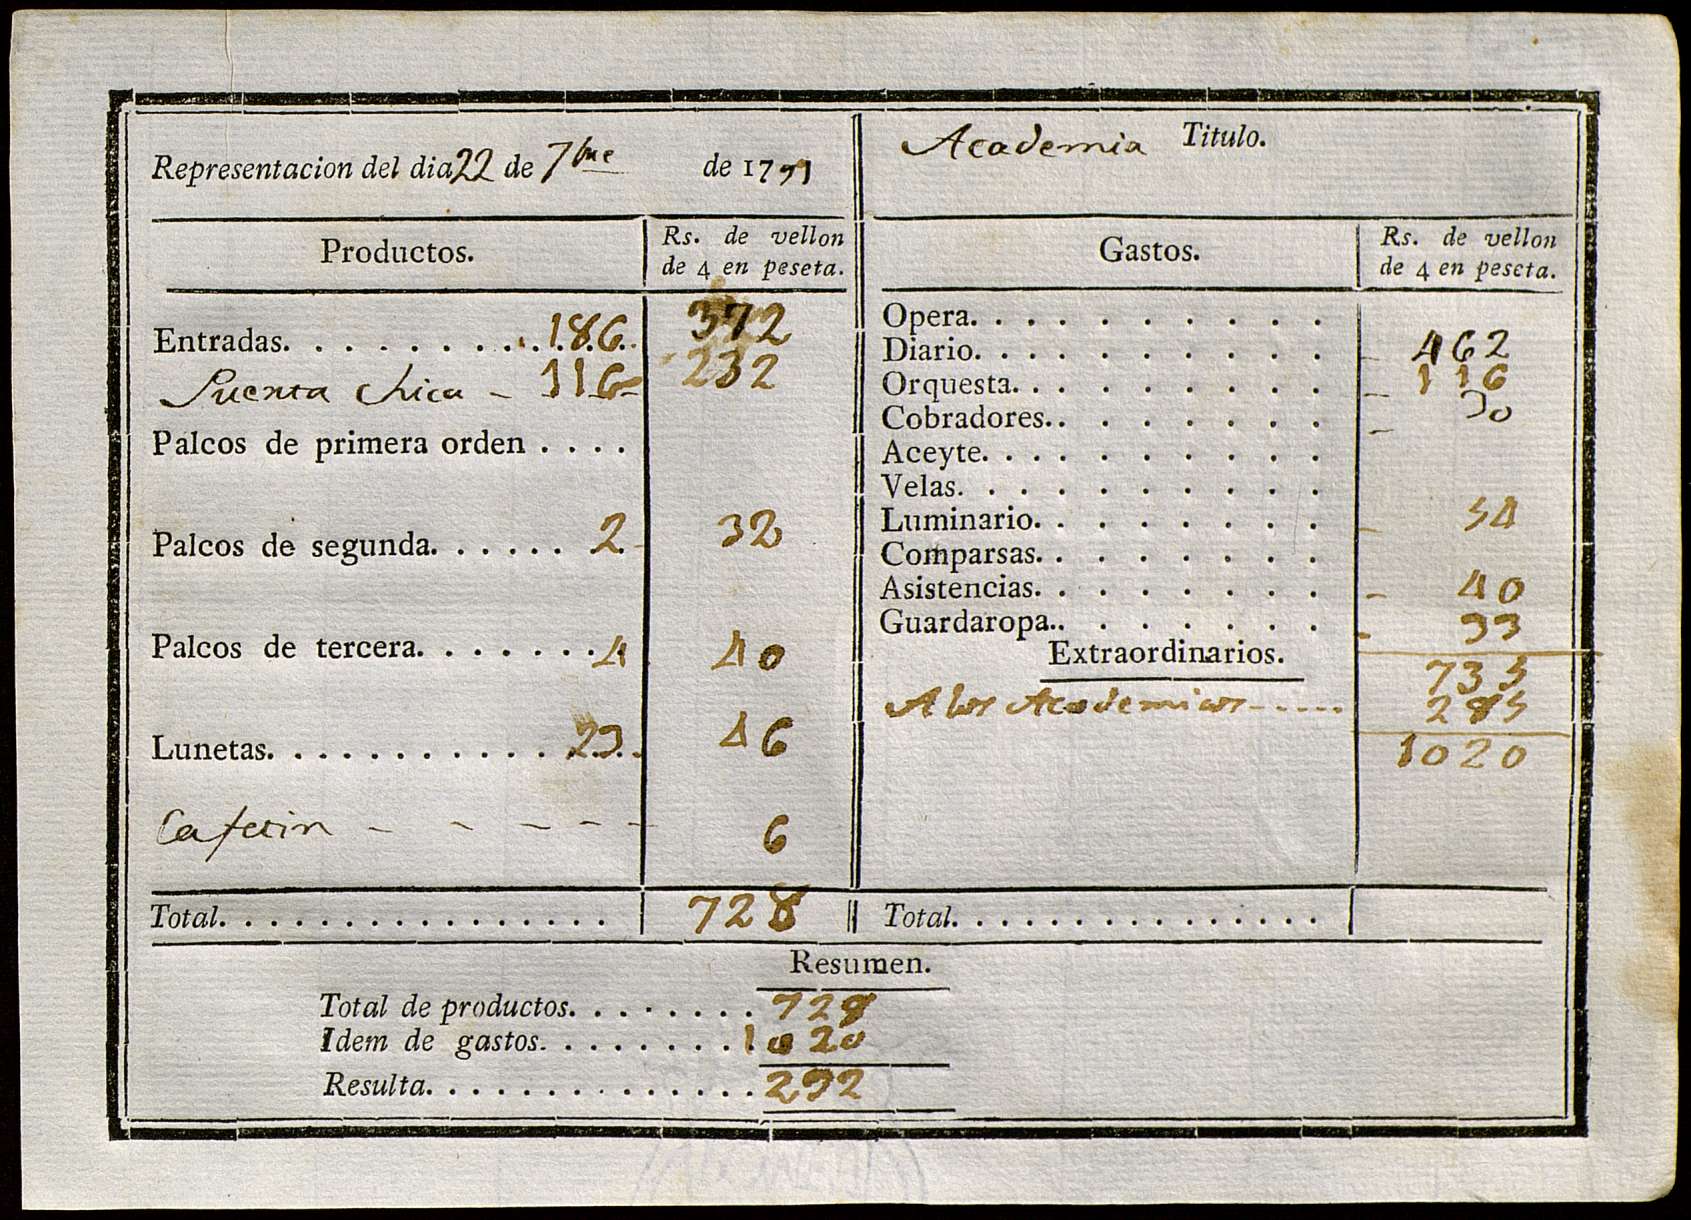 Representacion del dia 22 de 7bre de 1791
Academia Titulo.
Productos. Rs. de vellon
de 4 en peseta.
Entradas. . . . . . . . . . 186 372
Puerta chica - 116 232
Palcos de primera orden . . . .
Palcos de segunda. . . . . . 2 32
Palcos de tercera. . . . . . . . 4 40
Lunetas. . . . . . . . . . . 23 46
Cafetin - - - - - - 6
Total. . . . . . . . . . . . . . . . 728
Gastos. Rs. de vellon
de 4 en peseta.
Opera. . . . . . . . . .
Diario. . . . . . . . . . 462
Orquesta. . . . . . . . . 116
Cobradores. . . . . . . . 30
Aceyte. . . . . . . . . .
Velas. . . . . . . . . .
Luminario. . . . . . . . 54
Comparsas. . . . . . . .
Asistencias. . . . . . . . 40
Guardaropa. . . . . . . . 33
Extraordinarios. 735
A los Academicos - - - - - 285
1020
Total. . . . . . . . . . . . . . .
Resumen.
Total de productos. . . . . . . . 728
Idem de gastos. . . . . . . . . 1020
Resulta. . . . . . . . . . . . . . 292